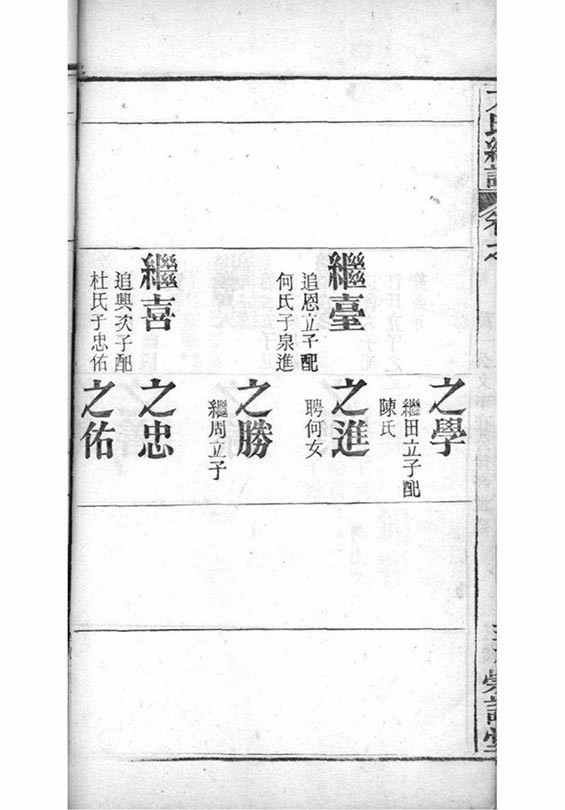 之學
繼田立子配
陳氏
繼臺
追恩立子配
何氏子泉進
之進
聘何女
之勝
繼周立子
繼喜
追興次子配
杜氏子忠佑
之忠
之佑